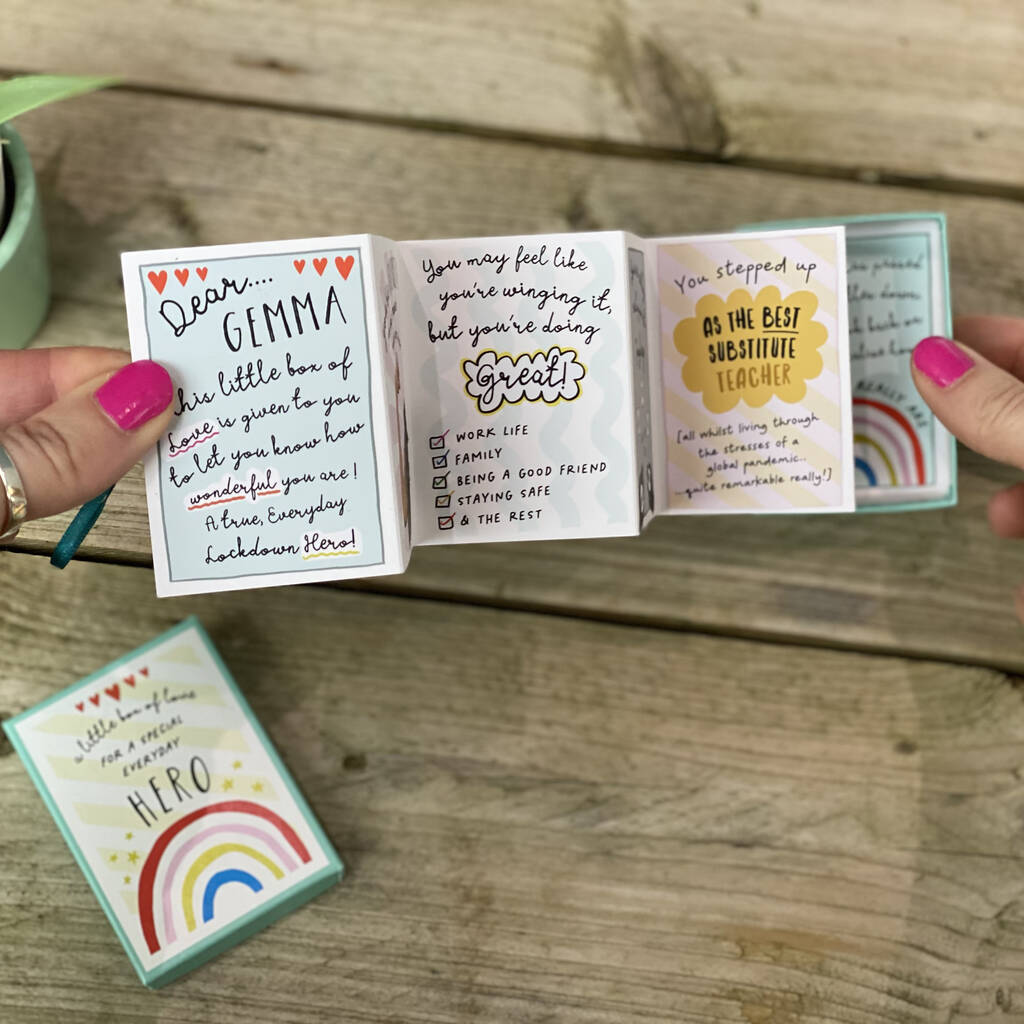 Dear....
GEMMA
This little box of
Love is given to you
to let you know how
wonderful you are!
A true, Everyday
Lockdown Hero!
You may feel like
you're winging it,
but you're doing
Great!
WORK LIFE
FAMILY
BEING A GOOD FRIEND
STAYING SAFE
& THE REST
You stepped up
AS THE BEST
SUBSTITUTE
TEACHER
[all whilst living through
the stresses of a
global pandemic..
...quite remarkable really!]
back on
REALLY ARE
a little box of love
FOR A SPECIAL
EVERYDAY
HERO